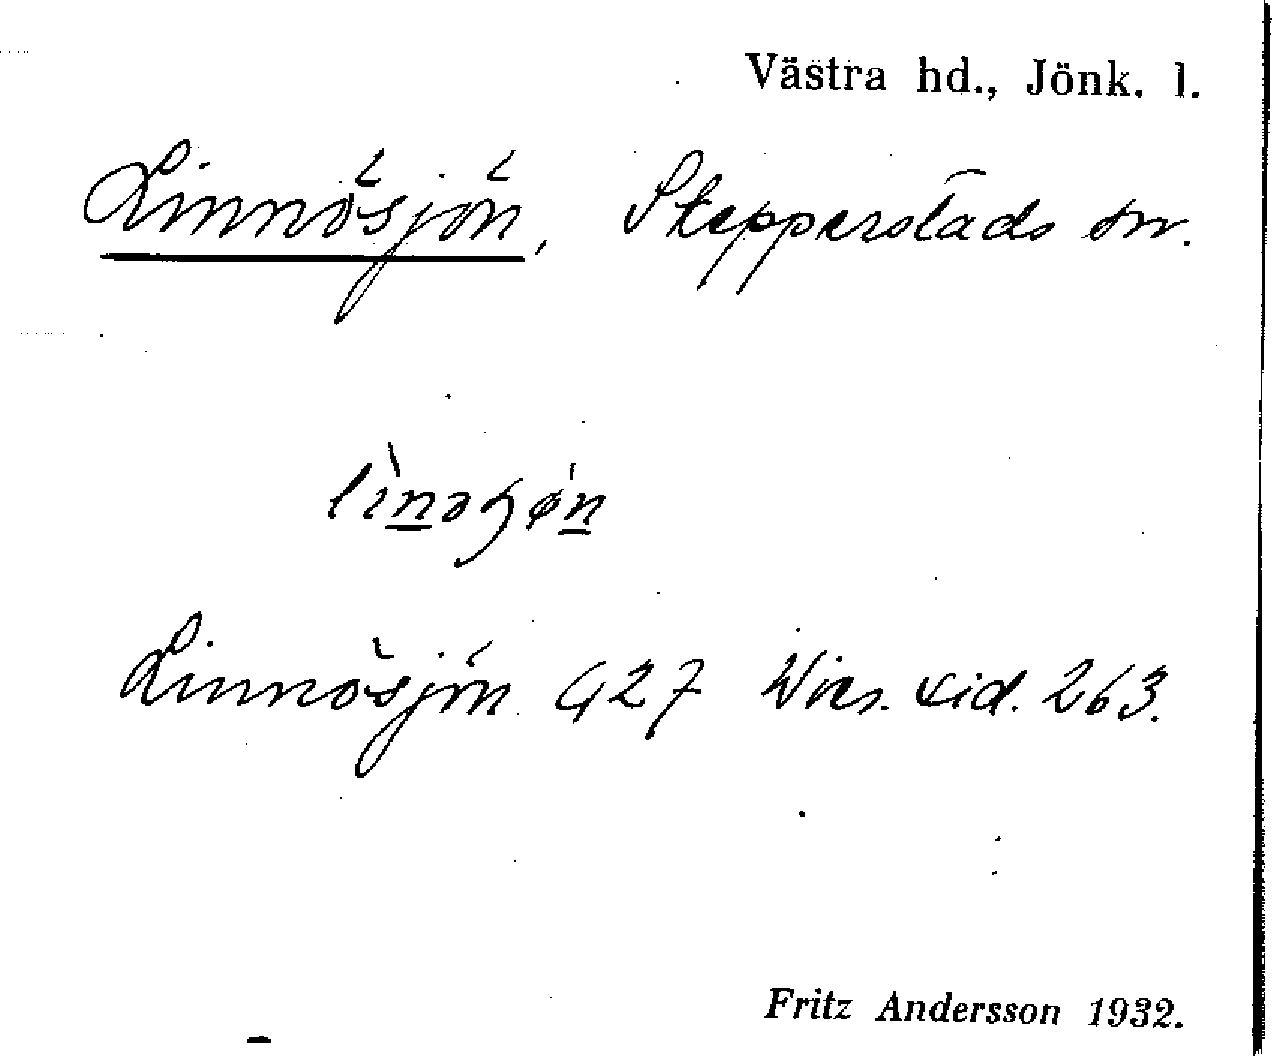 Västra hd., Jönk. l.
Linnösjön, Skepperstads sn.
Linnösjön 427 Wies. sid. 263.
Fritz Andersson 1932.